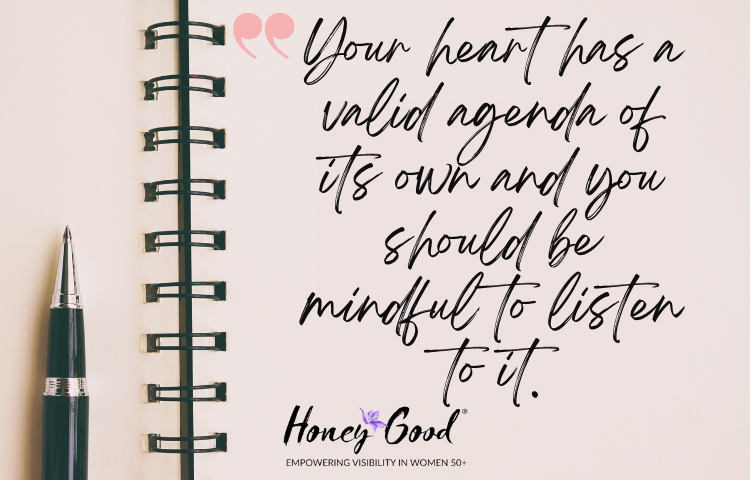 ❞ Your heart has a
valid agenda of
its own and you
should be
mindful to listen
to it.
Honey Good®
EMPOWERING VISIBILITY IN WOMEN 50+